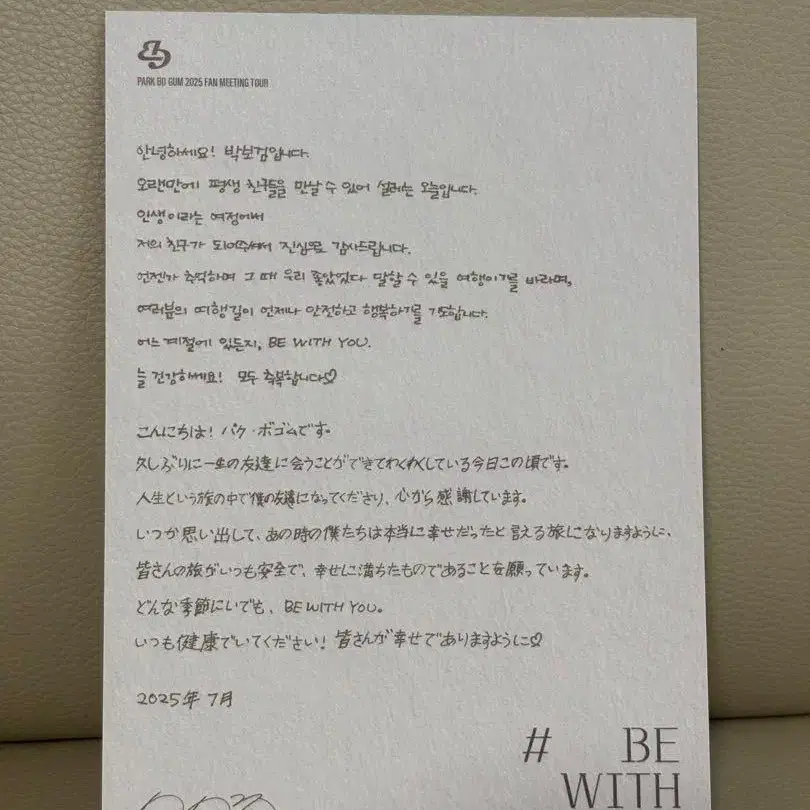 PARK BO GUM 2025 FAN MEETING TOUR
안녕하세요! 박보검입니다.
오랜만에 평생 친구들을 만날 수 있어 설레는 오늘입니다.
인생이라는 여정에서
저의 친구가 되어주셔서 진심으로 감사드립니다.
언젠가 추억하며 그 때 우리 좋았었다 말할 수 있을 여행이기를 바라며,
여러분의 여행길이 언제나 안전하고 행복하기를 기도합니다.
어느 계절에 있든지, BE WITH YOU.
늘 건강하세요! 모두 축복합니다♡
こんにちは! パク・ボゴムです。
久しぶりに一生の友達に会うことができてわくわくしている今日この頃です。
人生という旅の中で僕の友達になってくださり、心から感謝しています。
いつか思い出して、あの時の僕たちは本当に幸せだったと言える旅になりますように、
皆さんの旅がいつも安全で、幸せに満ちたものであることを願っています。
どんな季節にいても、BE WITH YOU。
いつも健康でいてください! 皆さんが幸せでありますように♡
2025年 7月
# BE
WITH